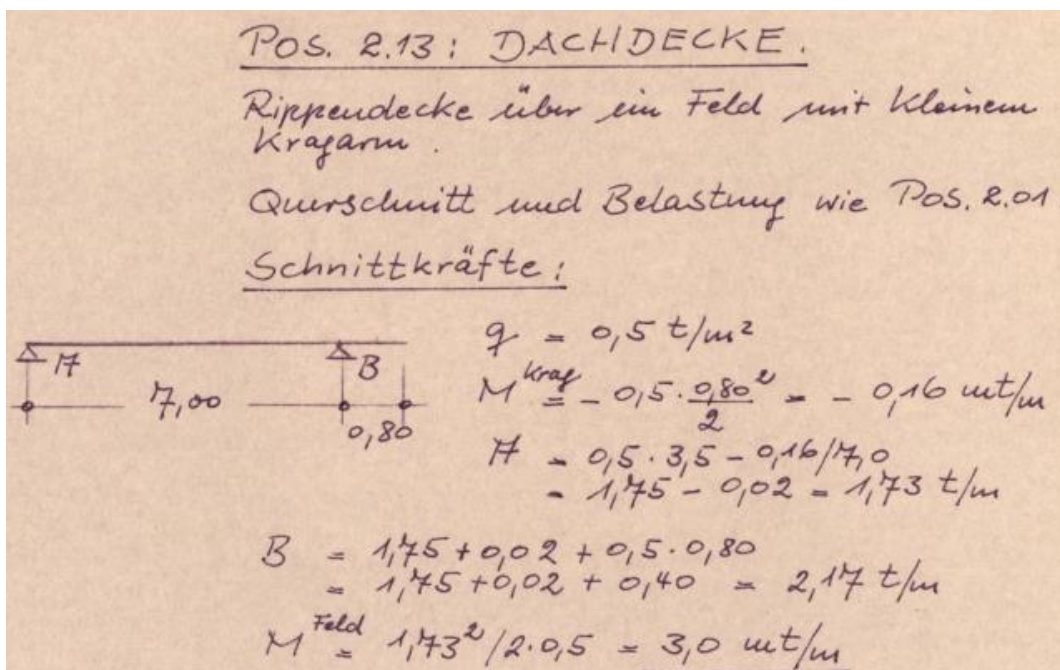 POS. 2.13: DACHDECKE.
Rippendecke über ein Feld mit kleinem
Kragarm.
Querschnitt und Belastung wie Pos. 2.01
Schnittkräfte:
A
B
7,00
0,80
q = 0,5 t/m²
M^Krag = - 0,5 · 0,80²/2 = - 0,16 mt/m
A = 0,5 · 3,5 - 0,16/7,0
= 1,75 - 0,02 = 1,73 t/m
B = 1,75 + 0,02 + 0,5 · 0,80
= 1,75 + 0,02 + 0,40 = 2,17 t/m
M^Feld = 1,73²/2·0,5 = 3,0 mt/m